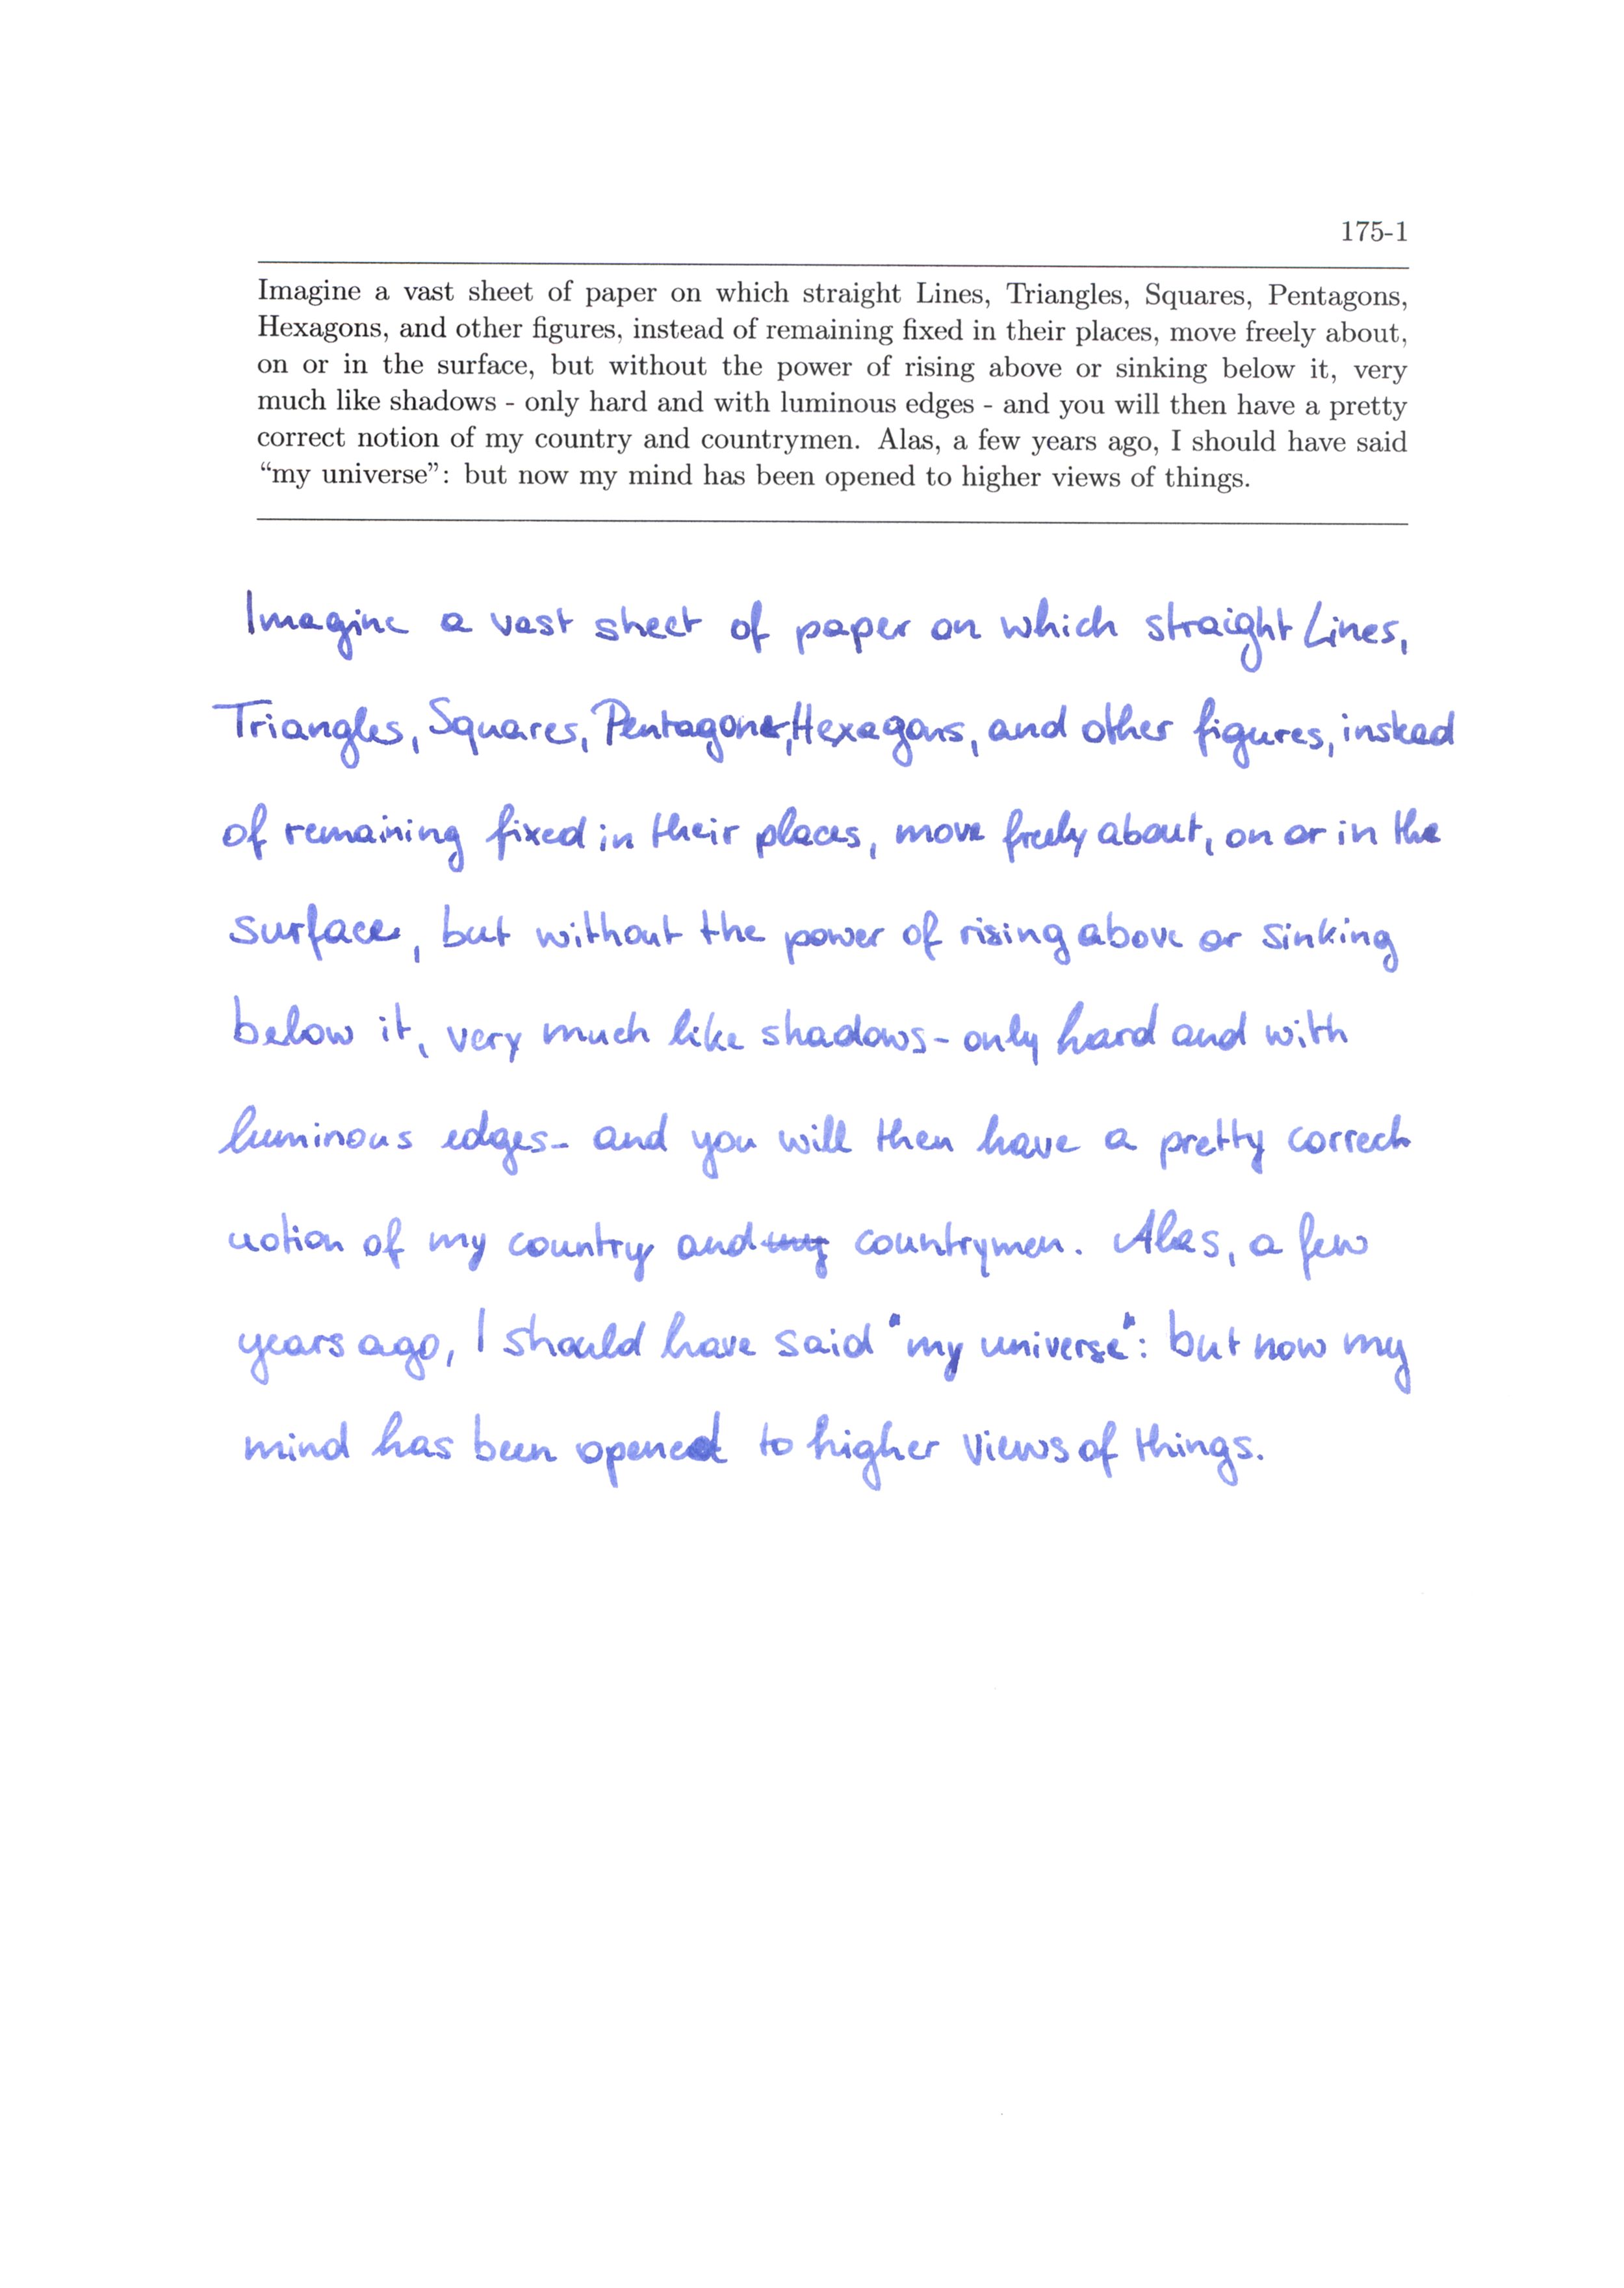 175-1
Imagine a vast sheet of paper on which straight Lines, Triangles, Squares, Pentagons,
Hexagons, and other figures, instead of remaining fixed in their places, move freely about,
on or in the surface, but without the power of rising above or sinking below it, very
much like shadows - only hard and with luminous edges - and you will then have a pretty
correct notion of my country and countrymen. Alas, a few years ago, I should have said
“my universe”: but now my mind has been opened to higher views of things.
Imagine a vast sheet of paper on which straight Lines,
Triangles, Squares, Pentagons, Hexagons, and other figures, instead
of remaining fixed in their places, move freely about, on or in the
surface, but without the power of rising above or sinking
below it, very much like shadows - only hard and with
luminous edges - and you will then have a pretty correct
notion of my country and my countrymen. Alas, a few
years ago, I should have said "my universe": but now my
mind has been opened to higher views of things.